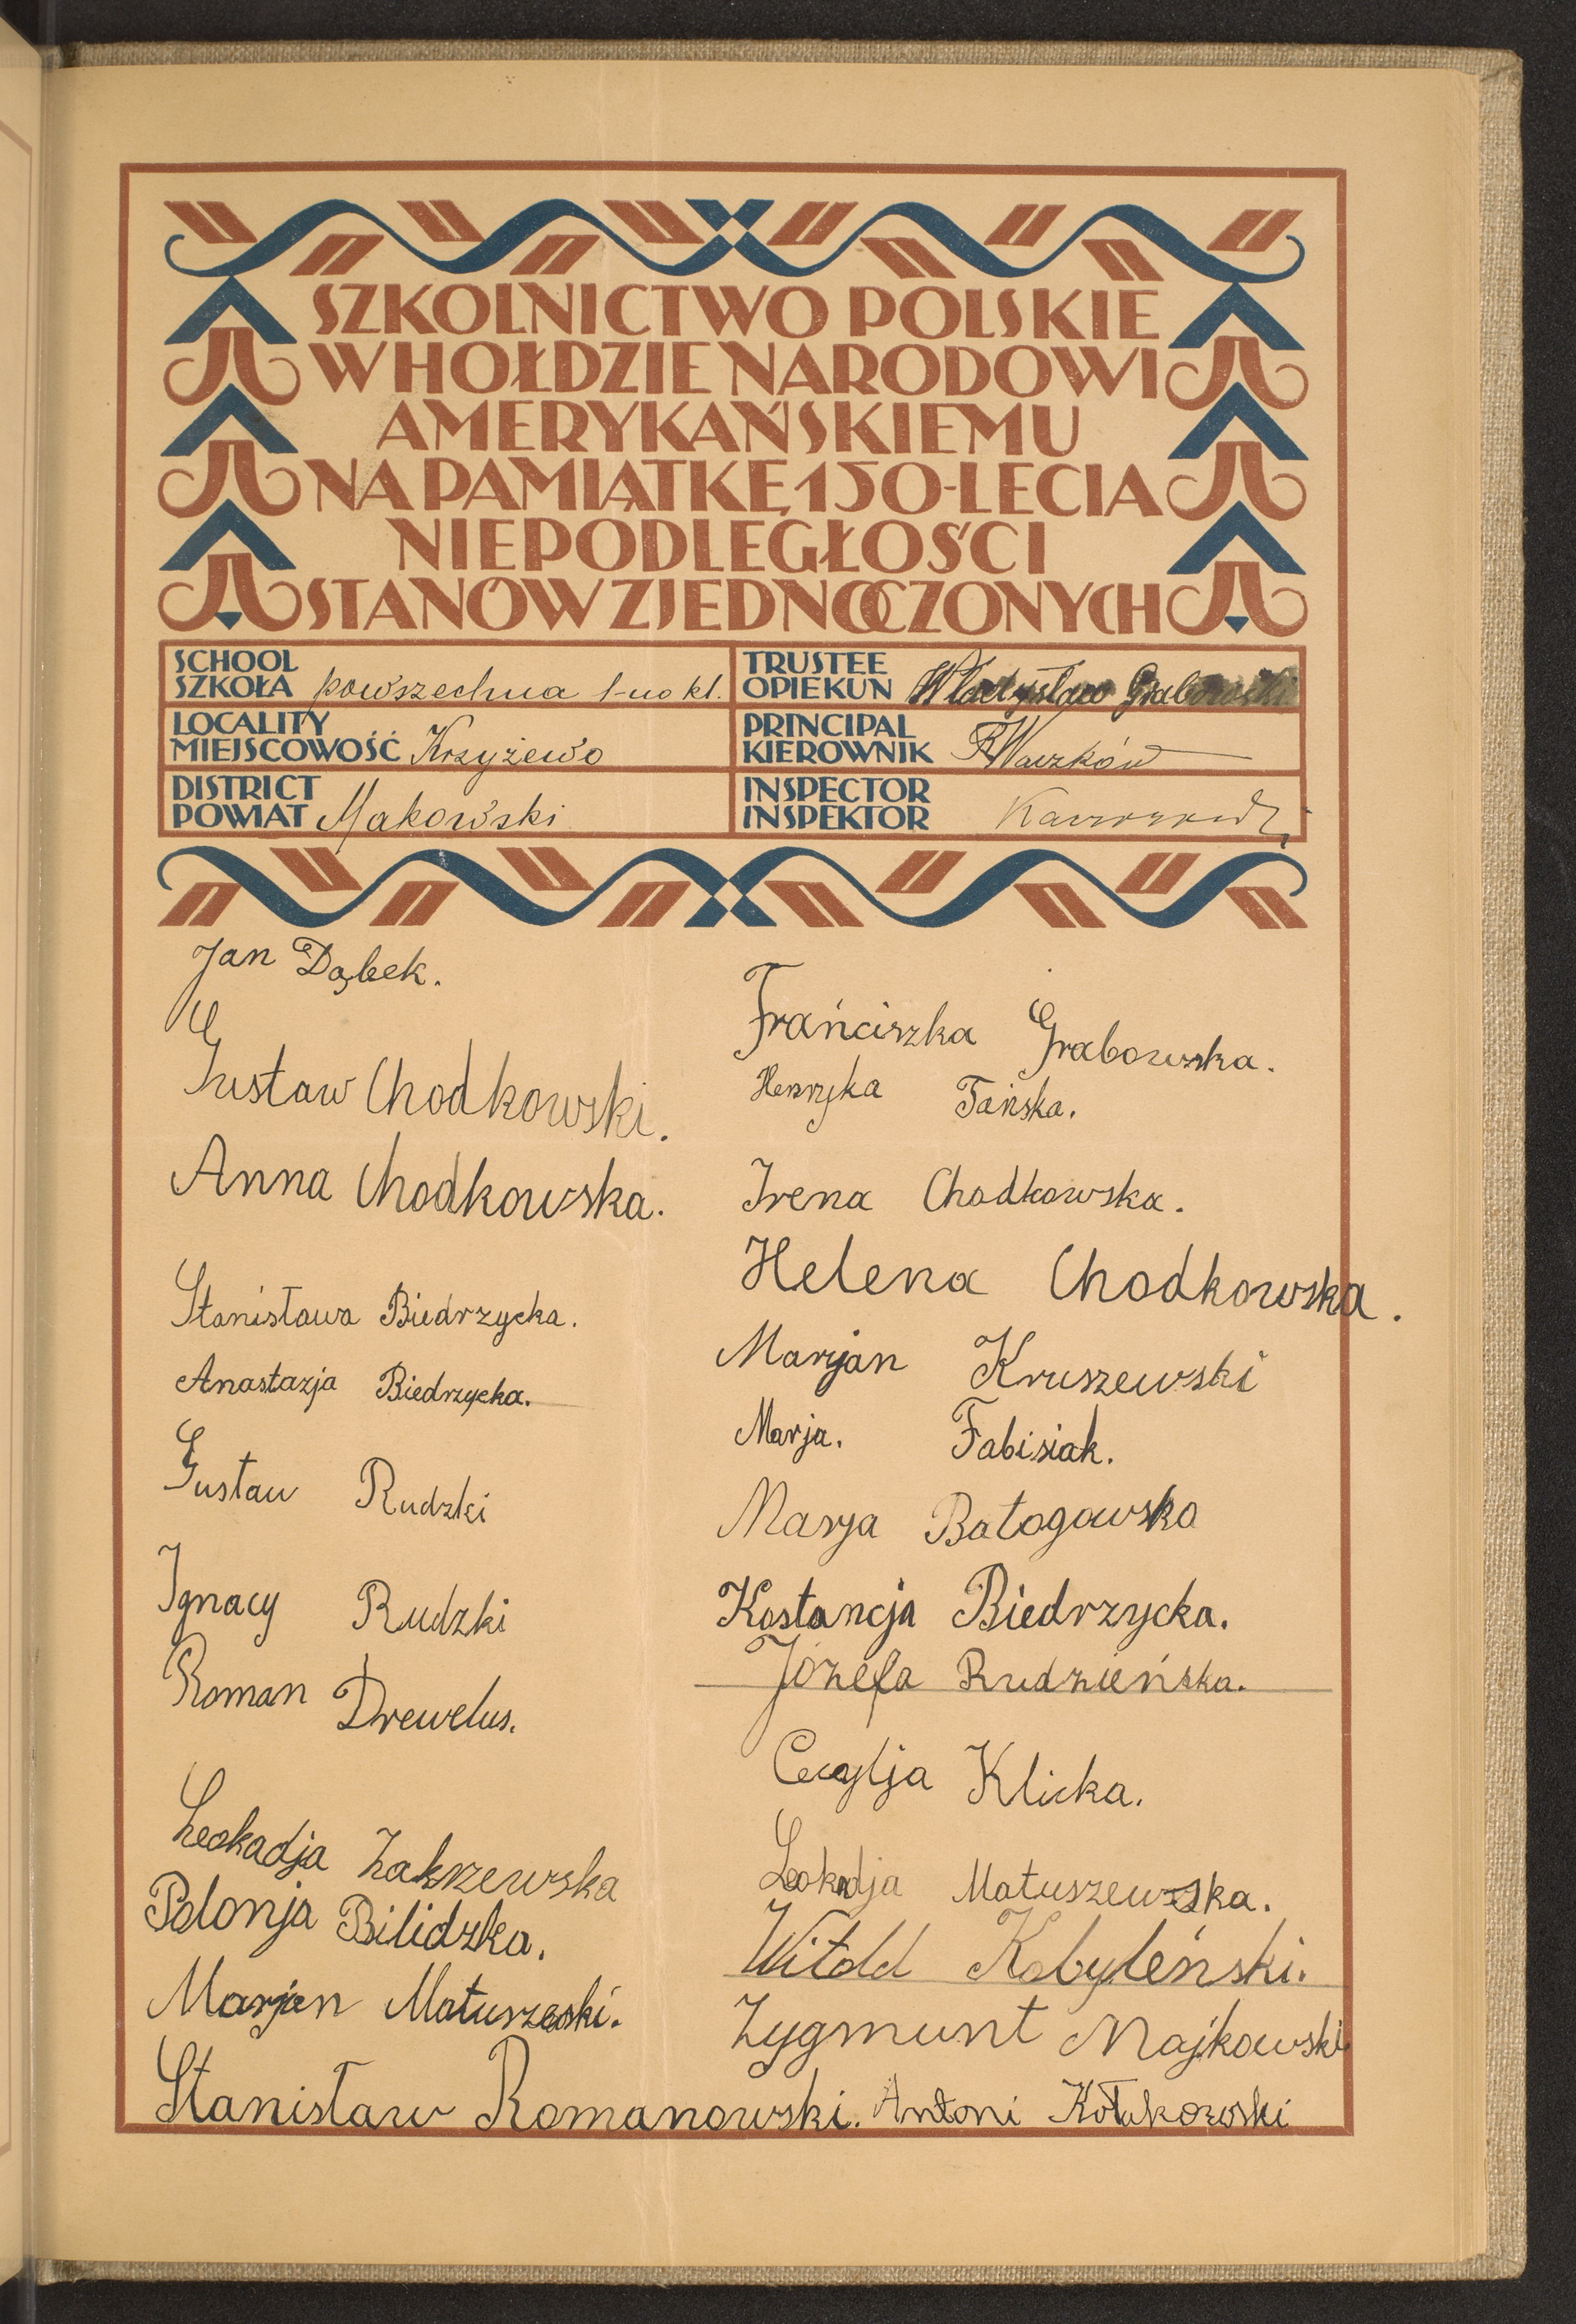 SZKOLNICTWO POLSKIE
W HOŁDZIE NARODOWI
AMERYKAŃSKIEMU
NA PAMIĄTKĘ 150-LECIA
NIEPODLEGŁOŚCI
STANÓW ZJEDNOCZONYCH
SCHOOL
SZKOŁA powszechna 1-no kl.
TRUSTEE
OPIEKUN Władysław Grabowski
LOCALITY
MIEJSCOWOŚĆ Krzyżewo
PRINCIPAL
KIEROWNIK
DISTRICT
POWIAT Makowski
INSPECTOR
INSPEKTOR
Jan Dąbek.
Gustaw Chodkowski.
Anna Chodkowska.
Stanisława Biedrzycka.
Anastazja Biedrzycka.
Gustaw Rudzki
Ignacy Rudzki
Roman Drewelus.
Leokadja Zakrzewska
Polonja Bilidzka.
Marjan Matuszeski.
Stanisław Romanowski.
Frańciszka Grabowska.
Henryka Tańska.
Irena Chodkowska.
Helena Chodkowska.
Maryjan Kruszewski
Marja. Fabisiak.
Marja Batogowska
Kostancja Biedrzycka.
Józefa Rudzieńska.
Cecylja Klicka.
Leokadja Matuszewska.
Witold Kobyleński.
Zygmunt Majkowski
Antoni Kołakowski